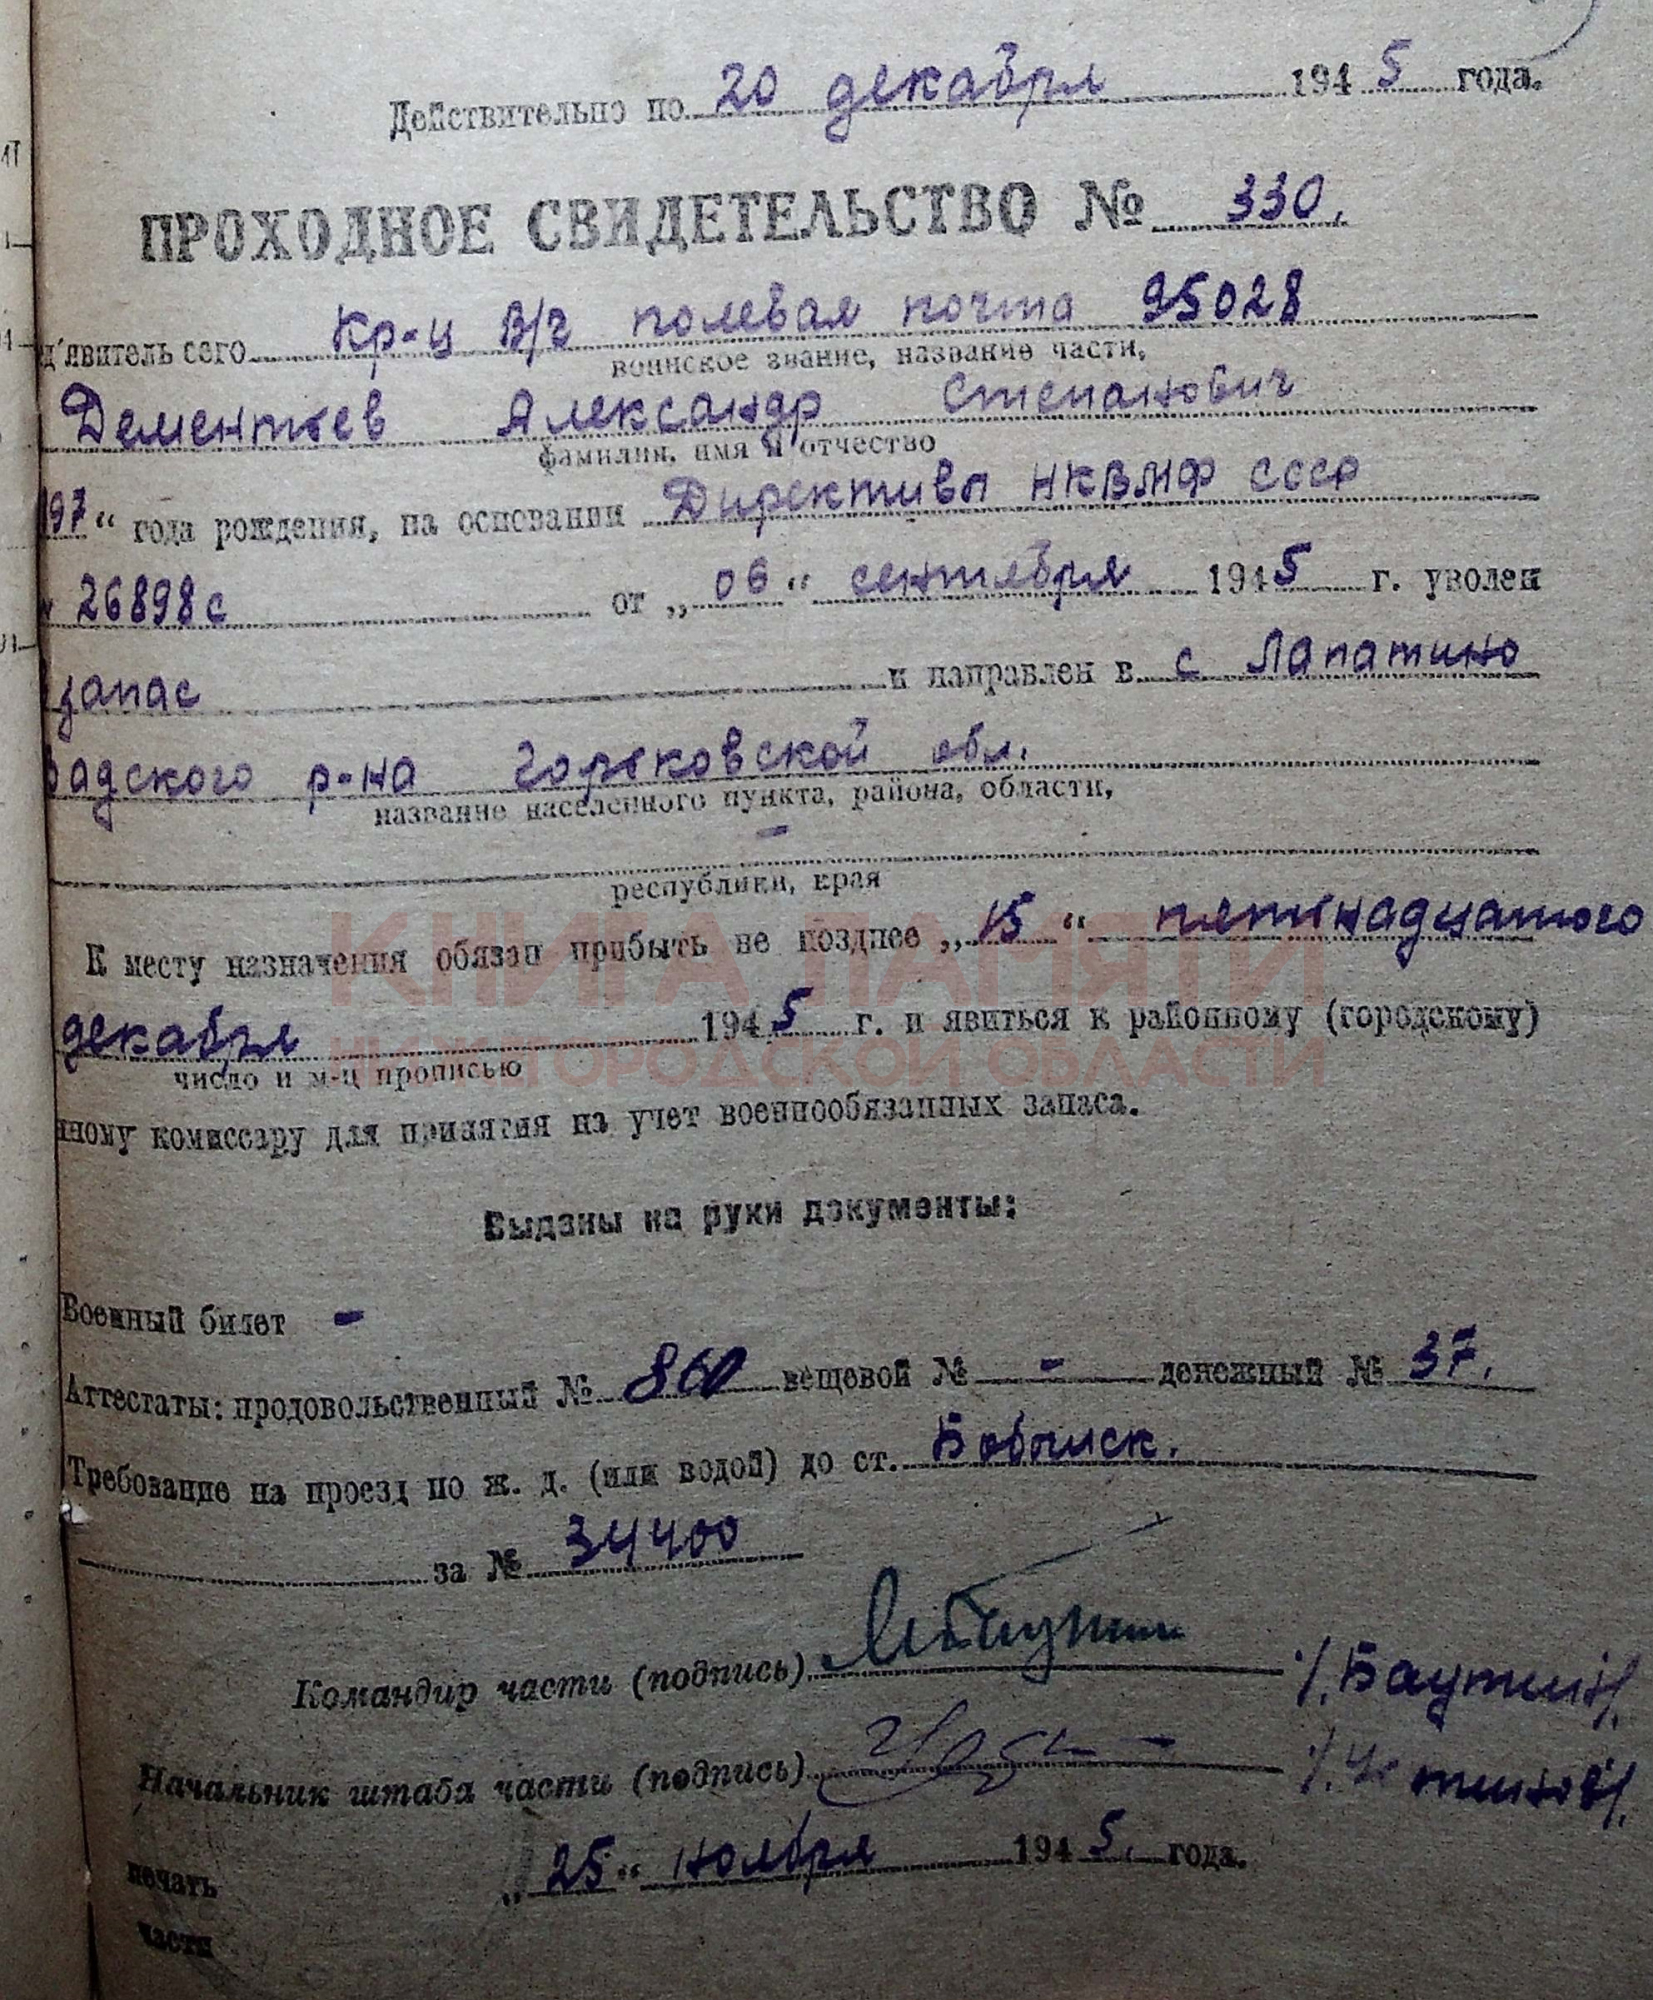 Действительно по 20 декабря 1945 года.
ПРОХОДНОЕ СВИДЕТЕЛЬСТВО № 330.
д'явитель сего Кр-ц В/ч полевая почта 95028
воинское звание, название части,
Дементьев Александр Степанович
фамилия, имя и отчество
97 “ года рождения, на основании Директивы НКВМФ СССР
26898с от „ 06 “ сентября 1945 г. уволен
запас и направлен в с Лапатино
адского р-на Горьковской обл.
название населенного пункта, района, области,
-
республики, края
К месту назначения обязан прибыть не позднее „ 15 “ пятнадцатого
декабря 1945 г. и явиться к районному (городскому)
число и м-ц прописью
ному комиссару для принятия на учет военнообязанных запаса.
Выданы на руки документы:
Военный билет -
Аттестаты: продовольственный № 860 вещевой № - денежный № 37.
Требование на проезд по ж. д. (или водой) до ст.
за № 34400
Командир части (подпись) /.Баутин/.
Начальник штаба части (подпись)
„ 25 “ ноября 1945. года.
печать
части
КНИГА ПАМЯТИ
НИЖЕГОРОДСКОЙ ОБЛАСТИ